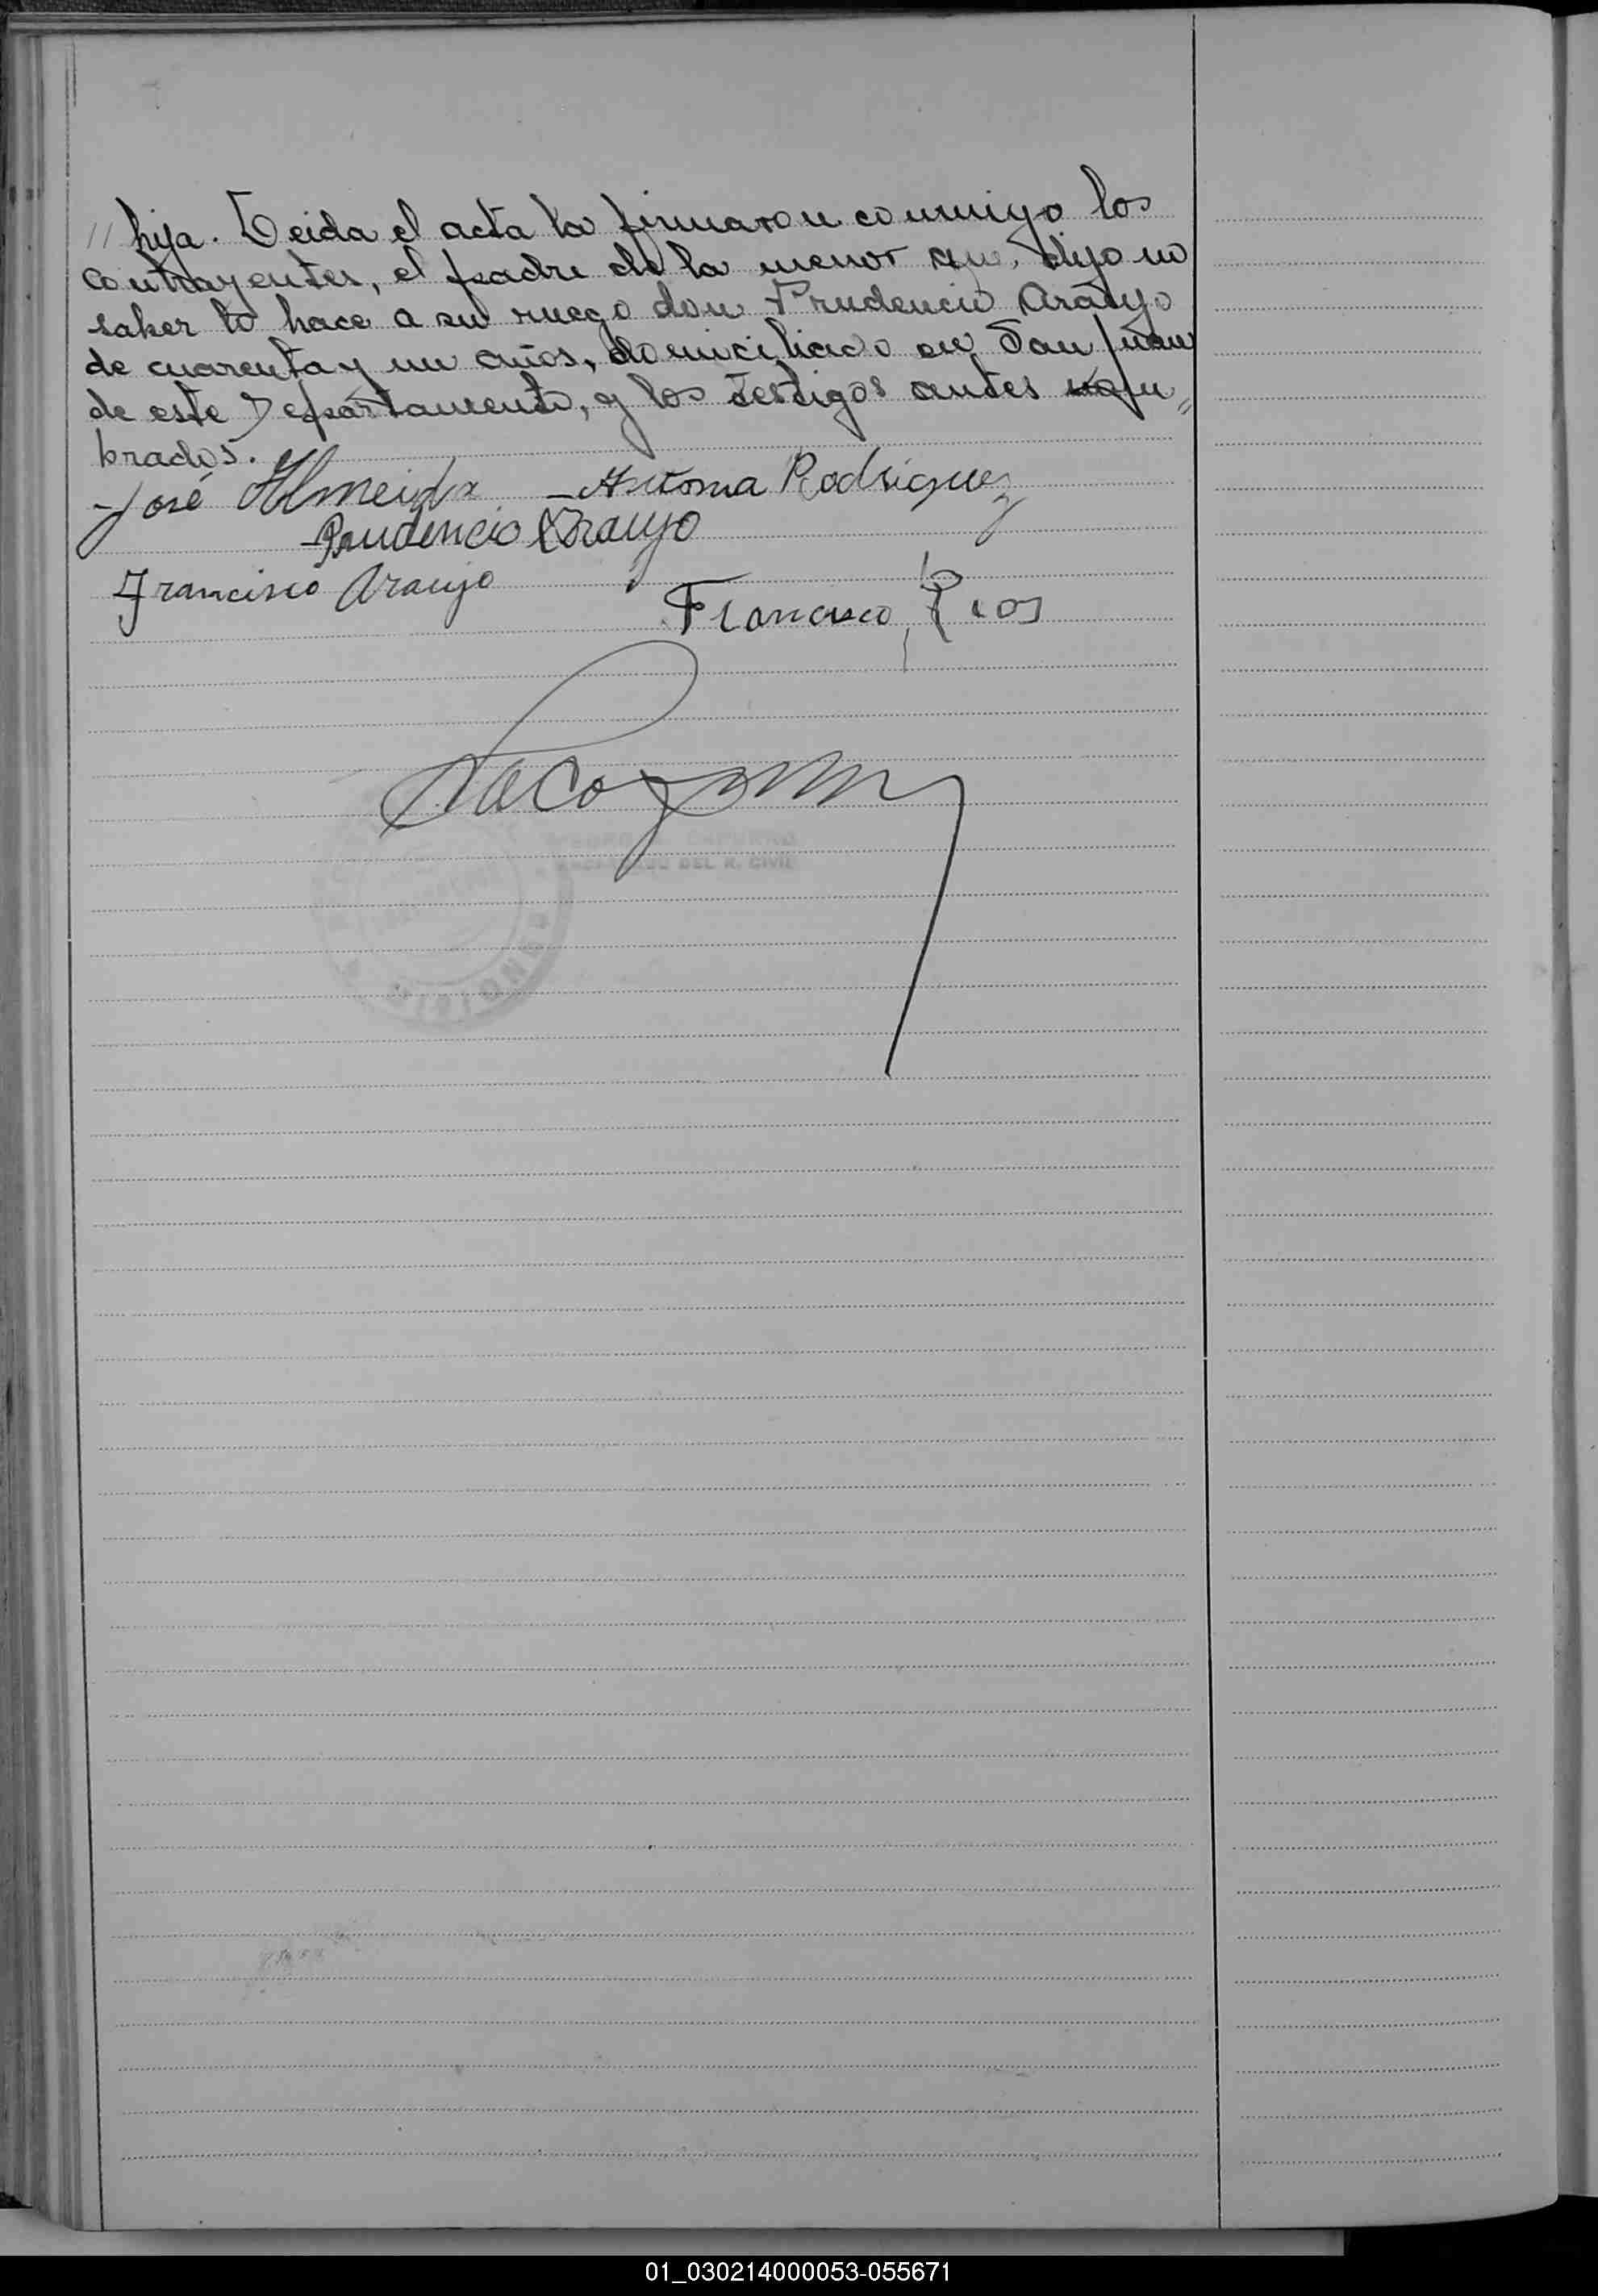 // hija. Leida el acta la firmaron conmigo los
contrayentes, el padre de la menor que dijo no
saber lo hace a su ruego don Prudencio Araujo
de cuarenta y un años, domiciliado en San Juan
de este Departamento, y los testigos antes nom„
brados.
José Almeida - Antonia Rodriguez
Prudencio Araujo
Francisco Araujo
Francisco Rios
DEL R. CIVIL
01_030214000053-055671